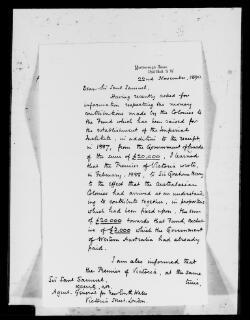 Marlborough House
Pall Mall. S.W.
22nd November, 1890.
Dear Sir Saul Samuel,
Having recently asked for
information respecting the money
contributions made by the Colonies to
the Fund which has been raised for
the establishment of the Imperial
Institute, in addition to the receipt
in 1887, from the Government of
of the sum of £20,000, I learned
that the Premier of Victoria wrote,
in February, 1888, to Sir Graham Berry
to the effect that the Australasian
Colonies had arrived at an understand-
ing to contribute together, in proportions
which had been fixed upon, the sum
of £20,000 towards that Fund,
of £2,000 which the Government
of Western Australia had already
paid.
I am also informed that
the Premier of Victoria, at the same
time,
Sir Saul Samuel,
Agent General for New South Wales
Victoria Street, London.